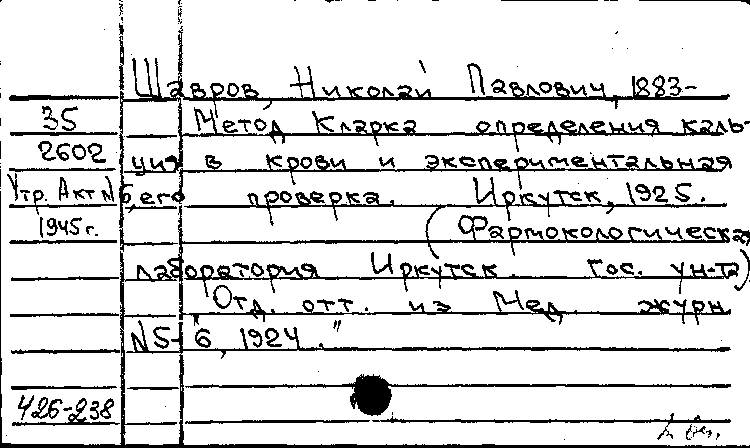 Шавров, Николай Павлович, 1883-
35
Метод Кларка определения каль-
2602
ция в крови и экспериментальная
Утр. Акт N6,
его проверка. Иркутск, 1925.
1945 г.
(Фармокологическая
лаборатория Иркутск. гос. ун-та)
"Отд. отт. из Мед. журн.
N5-6, 1924."
426-238